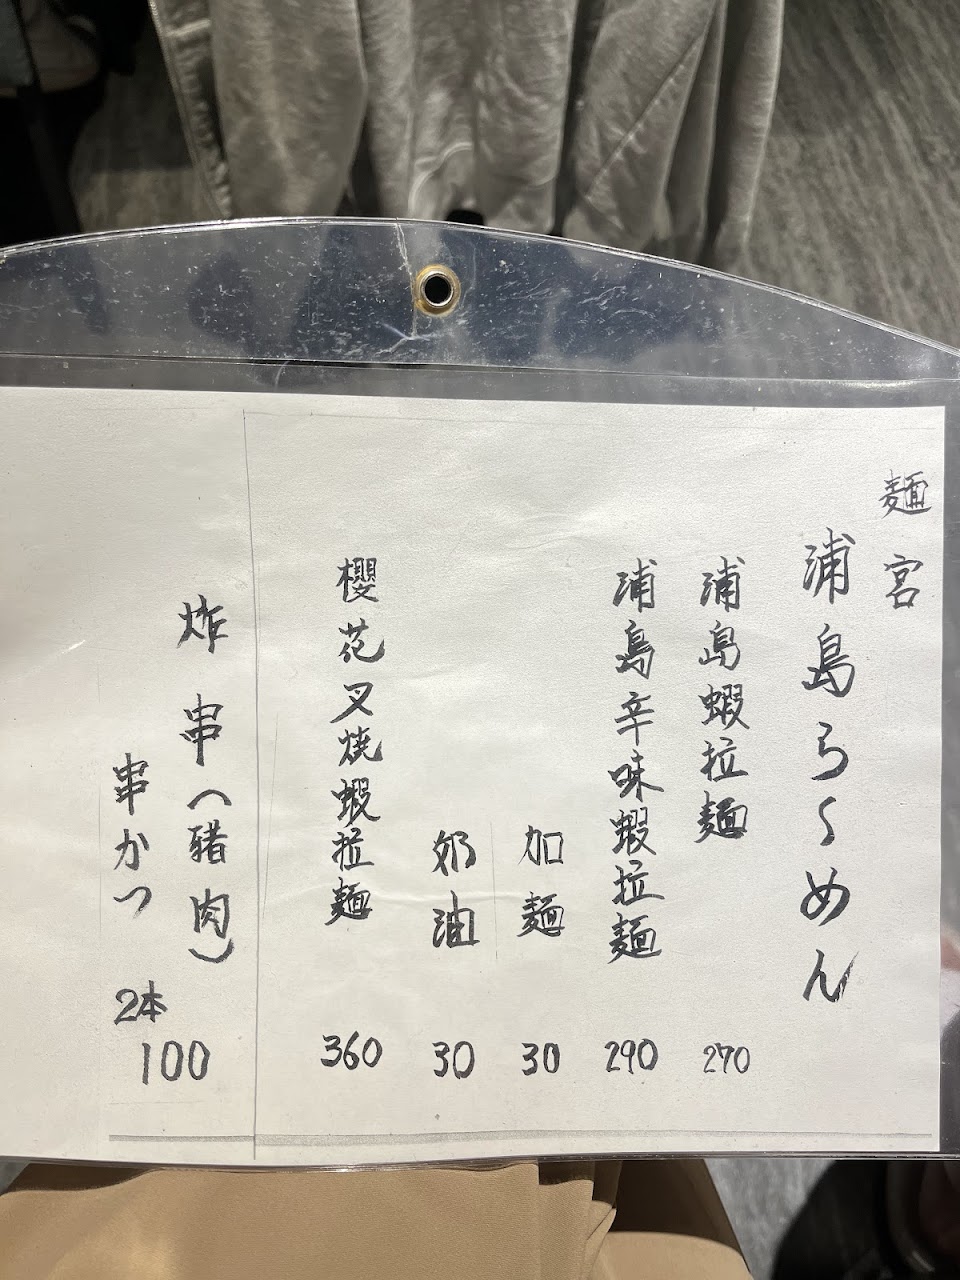 麵宮
浦島ら〜めん
浦島蝦拉麵 270
浦島辛味蝦拉麵 290
加麵 30
奶油 30
櫻花叉燒蝦拉麵 360
炸串(豬肉)
串かつ 2本 100